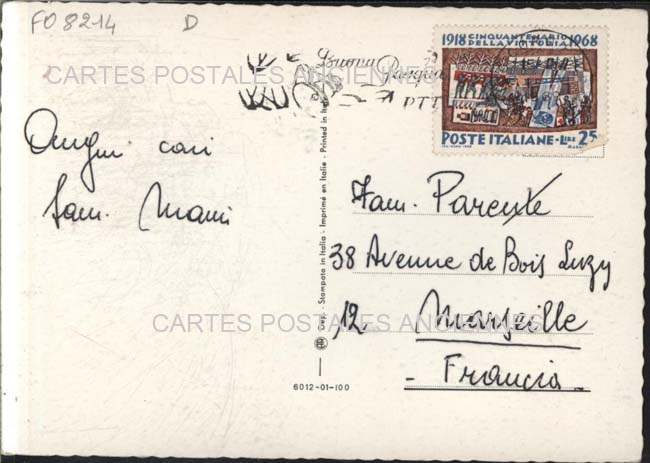 FO 8214 D
1918 CINQUANTENARIO 1968
DELLA VITTORIA
Buona
Pasqua
PTT
CARTES POSTALES ANCIENNES
POSTE ITALIANE - LIRE 25
Auguri cari
Fam. Miami
Cep. - Stampata in Italia - Imprimé en Italie - Printed in Italy
Fam. Parente
38 Avenue de Bois Luzy
12, Marseille
- Francia -
CARTES POSTALES ANCIENNES
6012-01-100